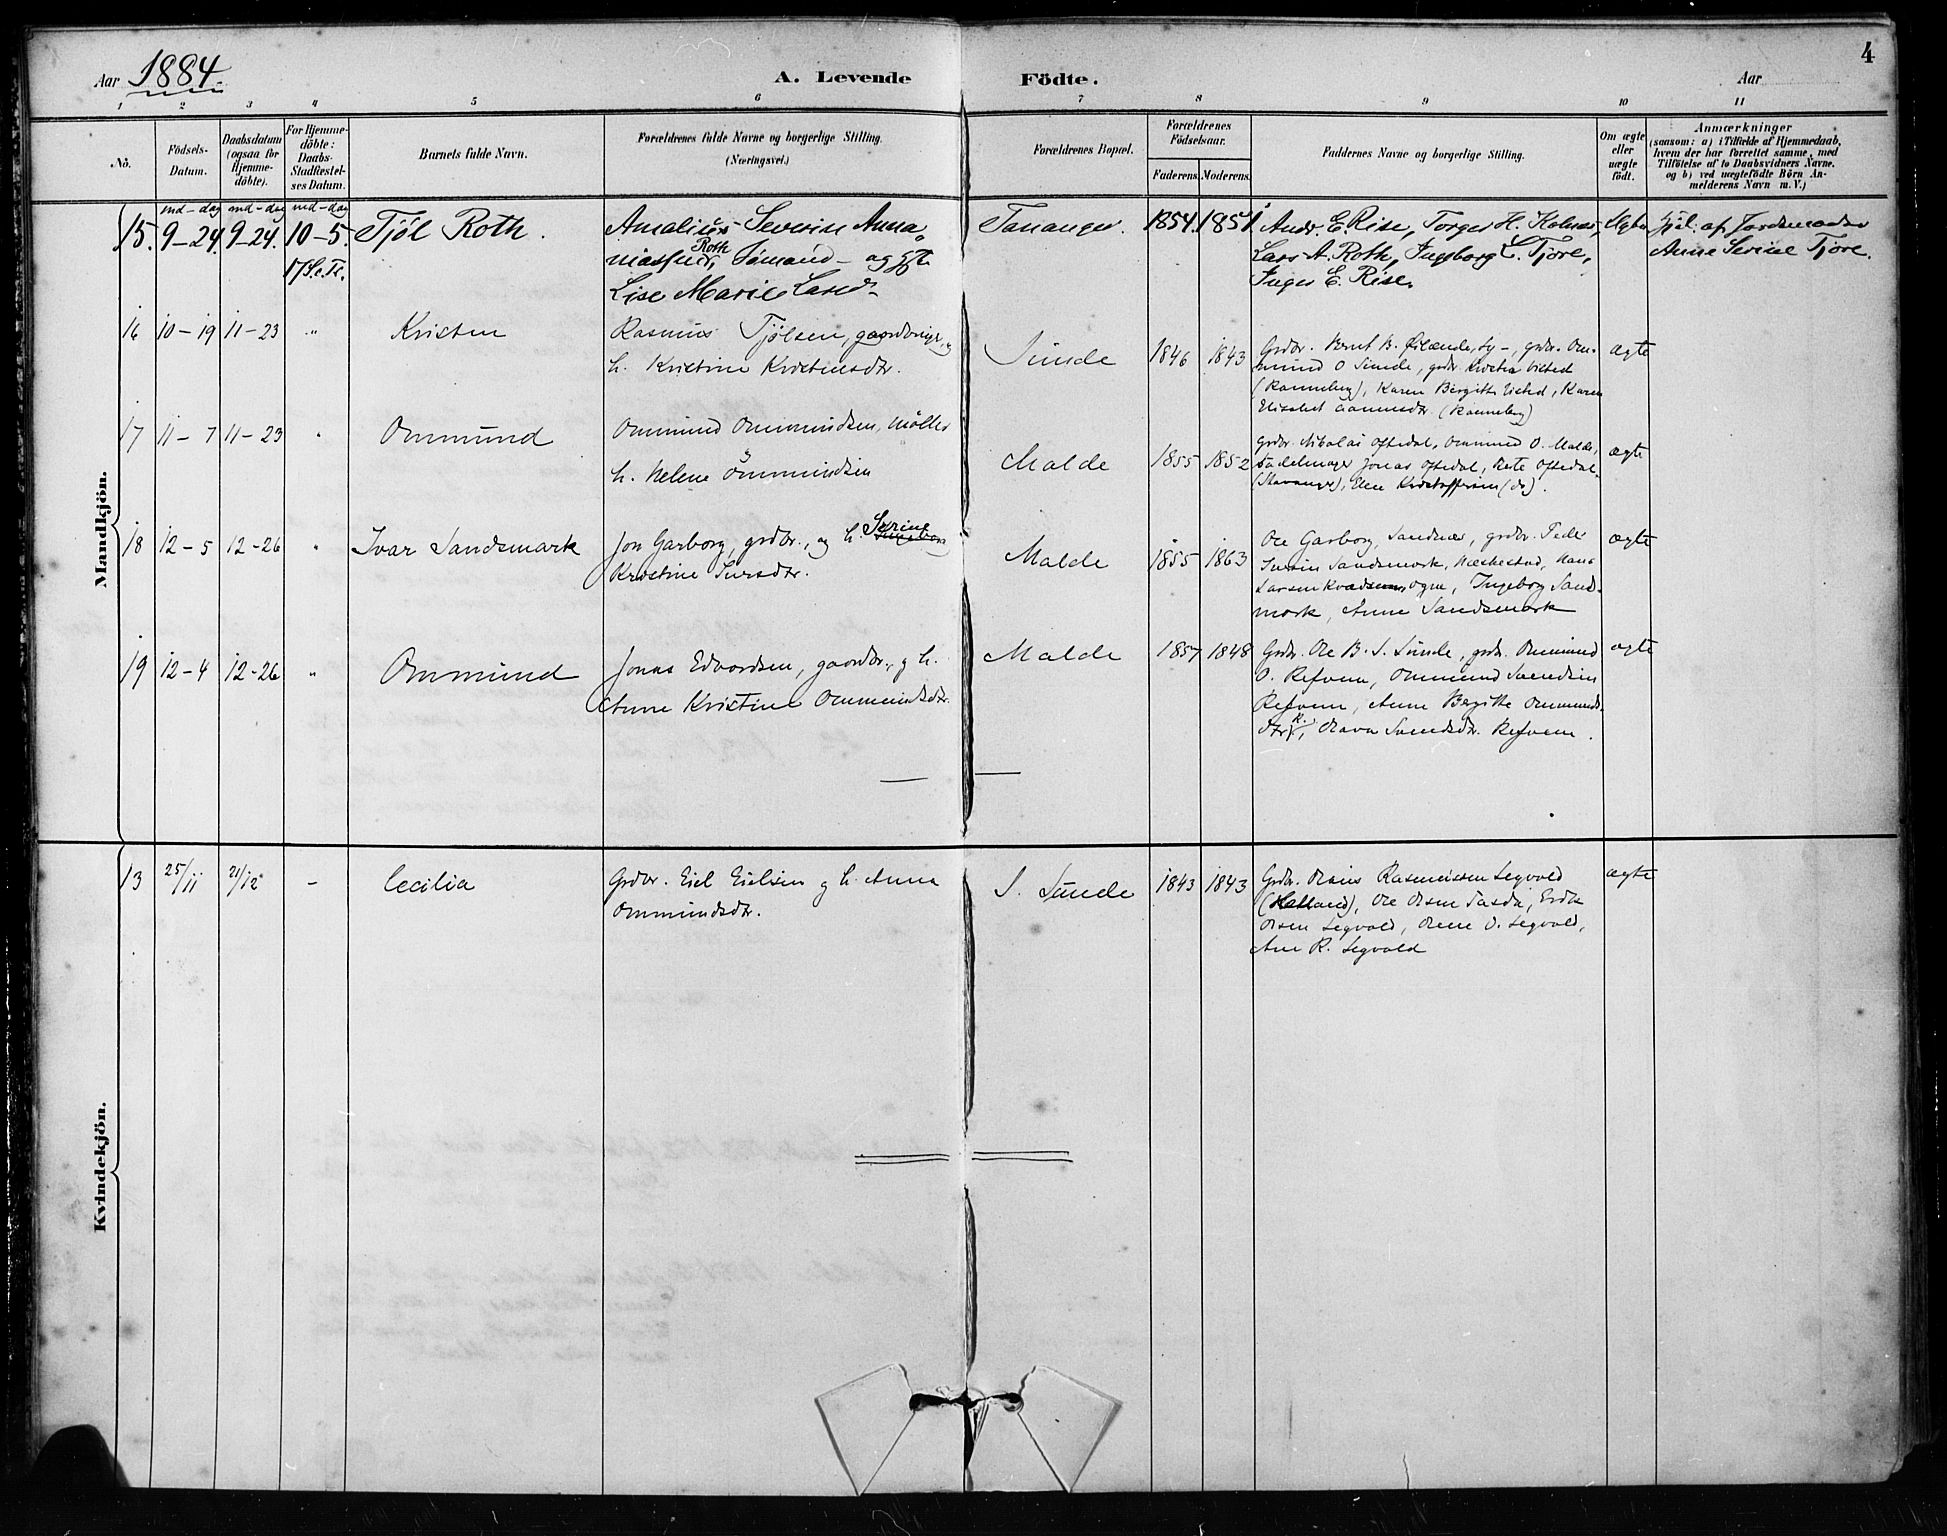 4
Aar 1884.
A. Levende Födte.
Aar
1 2 3 4 5 6 7 8 9 10 11
No.
Födsels-
Datum.
Daabsdatum
(ogsaa for
Hjemme-
döbte).
For Hjemme-
döbte:
Daabs-
Stadfæstel-
ses Datum.
Barnets fulde Navn.
Forældrenes fulde Navne og borgerlige Stilling.
(Næringsvei.)
Forældrenes Bopæl.
Forældrenes
Födselsaar.
Faderens. Moderens.
Faddernes Navne og borgerlige Stilling.
Om ægte
eller
uægte
födt.
Anmærkninger
(saasom: a) i Tilfælde af Hjemmedaab,
hvem der har forrettet samme, med
Tilföielse af to Daabsvidners Navne.
og b) ved uægtefödte Börn An-
melderens Navn m. V.)
Mandkjön.
md-dag md-dag md-dag
15. 9-24. 9-24. 10-5.
17 S. e. Tr.
Tjöl Roth.
Amalius Severin Anna-
niassen Roth, Sömand - og Gft.
Lise Marie Larsd.
Tananger. 1854. 1851
Andr. E. Rise, Torger H. Kolnes,
Lars A. Roth, Ingeborg L. Tjore,
Inger E. Rise.
Hjd. af Jordemoder
Anne Serine Tjore.
16 10-19 11-23 "
Kristen
Rasmus Tjölsen, gaardbruger, og
h. Kristine Kristensdtr.
Sunde 1846 1843
Grdbr. Bernt B.
mund O Sunde, grdbr Kristen
(Ranneberg), Karen Birgitte, Karen
Elisabet (Ranneberg)
ægte
17 11-7 11-23 "
Ommund
Ommund Ommundsen, Møller
h. Helene Ommundsen
Malde 1855 1852
grdbr. Nikolai Oftedal, Ommund O. Malde,
Sadelmager Jonas Oftedal, Berte Oftedal
(Stavanger), Elen Kristoffersen (do).
ægte
18 12-5 12-26 "
Ivar Sandsmark
Jon Garborg, grdbr., og h. Serine
Kristine Iversdtr.
Malde 1855 1863
Ole Garborg, Sandnæs, grdbr. Peder
Iversen Sandsmark, Hæskestad, Hans
Larsen, Ogne, Ingeborg Sand-
mark, Anne Sandsmark
ægte
19 12-4 12-26 "
Ommund
Jonas Edvardsen, gaardbr., g h.
Anne Kristine Ommundsdtr.
Malde 1857 1848
Grdbr. Ole B. S. Sunde, grdbr. Ommund
O. Refvem, Ommund Svendsen
Refvem, Anne Birgitte Ommunds-
dtr R., Svendsdtr. Refvem.
ægte
Kvindekjön.
13 25/11 21/12 -
Cecilia
Grdbr. Eiel Eielsen g h. Anna
Ommundsdtr.
S. Sunde 1843 1843
Grdbr. Rasmussen Segvold
(Halland), Ole Olsen,
Olsen Segvold, O. Segvold,
Ane R. Segvold
ægte